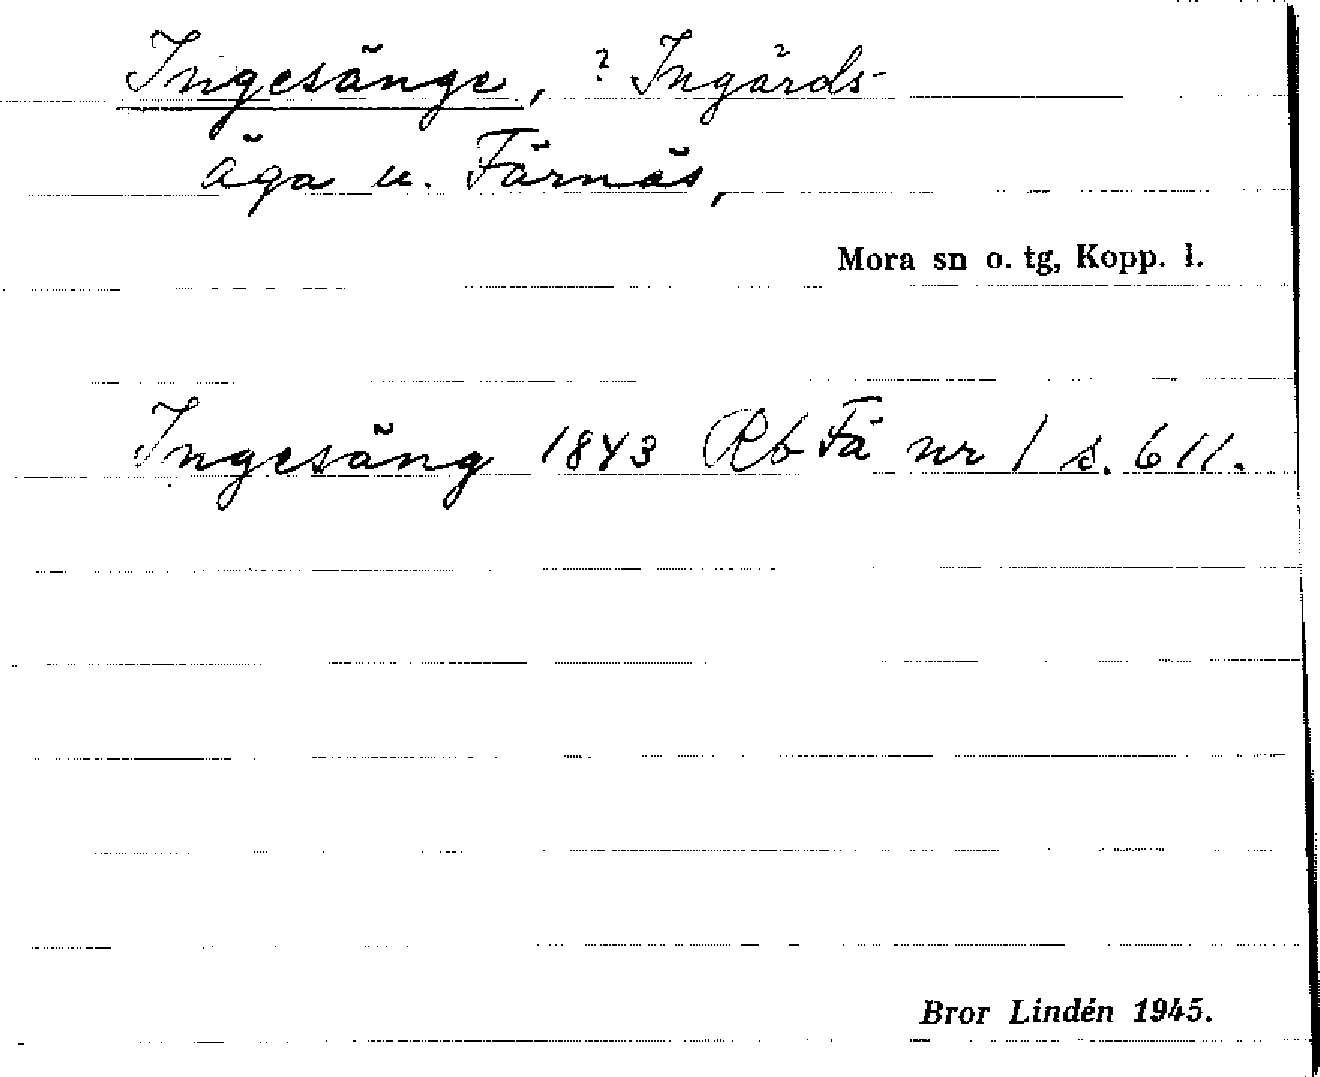 Ingesänge, ? Ingärds-
äga u. Färnäs,
Mora sn o. tg, Kopp. l.
Ingesäng 1843 Rb Fä nr 1 s. 611.
Bror Lindén 1945.